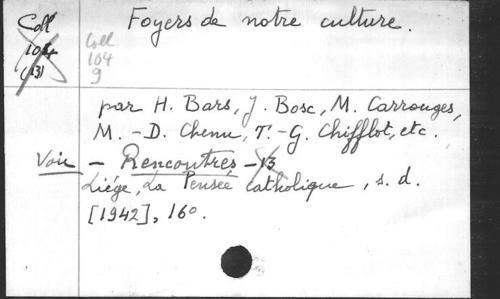 Foyers de notre culture.
Coll
104
(13)
Coll
104
9
par H. Bars, J. Bosc, M. Carrouges,
M.-D. Chenu, T.-G. Chifflot, etc.
Voir – Rencontres – 13
Liége, La Pensée catholique, s. d.
[1942], 16o.